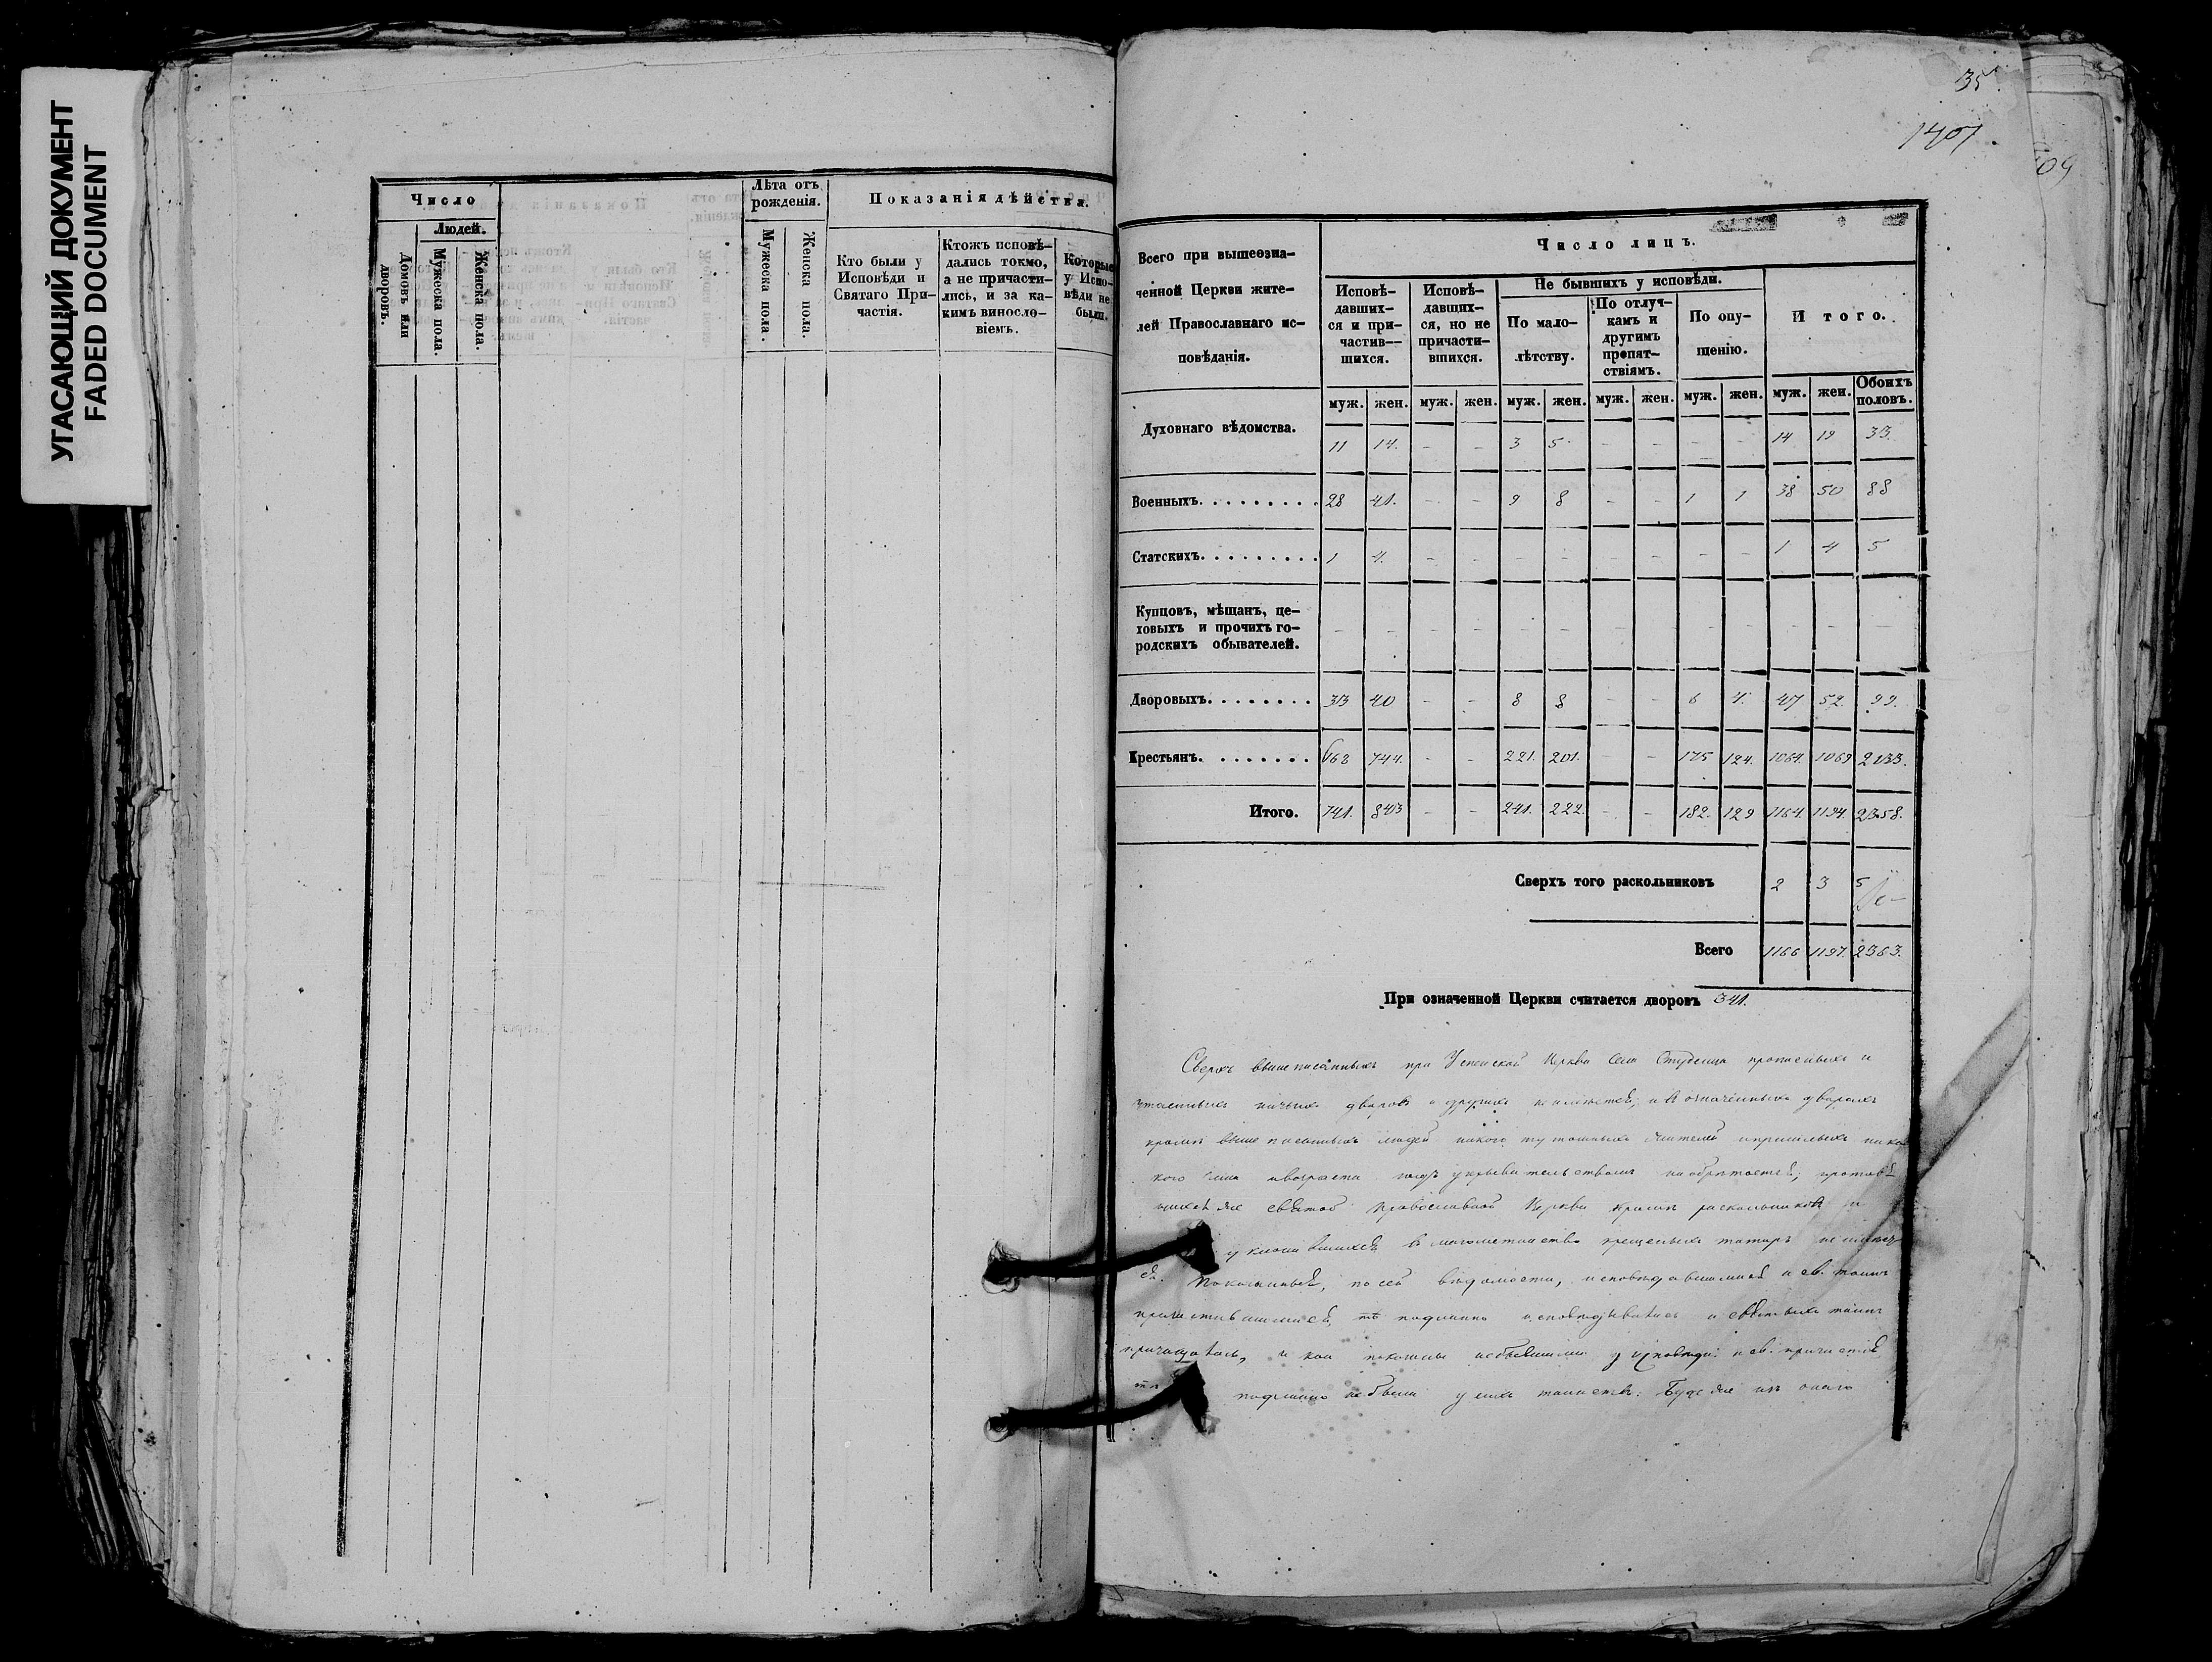 УГАСАЮЩИЙ ДОКУМЕНТ
FADED DOCUMENT
Число
Людей.
Домовъ или дворовъ.
Мужеска пола.
Женска пола.
Лѣта отъ рожденія.
Мужеска пола.
Женска пола.
Показанія дѣйства.
Кто были у Исповѣди и Святаго При-частія.
Ктожъ исповѣ-дались токмо, а не причасти-лись, и за ка-кимъ винословіемъ.
Которые у Испо-вѣди не были.
35.
1407.
09
Всего при вышеозна-
ченной Церкви жите-
лей Православнаго ис-
повѣданія.
Число лицъ.
Исповѣ-давших-ся и при-частив-шихся.
Исповѣ-давших-ся, но не причасти-вшихся.
Не бывшихъ у исповѣди.
По мало-лѣтству.
По отлуч-камъ и другимъ препят-ствіямъ.
По опу-щенію.
Итого.
муж. жен. муж. жен. муж. жен. муж. жен. муж. жен. муж. жен. Обоихъ половъ.
Духовнаго вѣдомства. 11 14. - - 3 5 - - - - 14 19 33.
Военныхъ. 28 41. - - 9 8 - - 1 1 38 50 88
Статскихъ. 1 4. - - - - - - - - 1 4 5
Купцовъ, мѣщанъ, це-
ховыхъ и прочихъ го-
родскихъ обывателей. - - - - - - - - - - - - -
Дворовыхъ. 33 40 - - 8 8 - - 6 4. 47 52. 99.
Крестьянъ. 668 744. - - 221. 201. - - 175 124. 1064. 1069 2133.
Итого. 741. 843 - - 241. 222. - - 182. 129 1164. 1194. 2358.
Сверхъ того раскольниковъ 2 3 5
Всего 1166 1197. 2363.
При означенной Церкви считается дворовъ 341.
Сверхъ вышеписанныхъ при Успенской Церкви села Студенца прописныхъ и
утаенныхъ ничьихъ дворовъ и другихъ не имѣется; и въ означенныхъ дворахъ
кромѣ вышеписанныхъ людей никого тутошнихъ жителей и пришлыхъ ника
кого чина и возраста подъ укрывательствомъ не обрѣтается;
святой православной Церкви кромѣ раскольниковъ и
уклонившихся въ магометанство крещеныхъ татаръ не
ся. Показанныя, по сей вѣдомости, исповѣдавшимися и св. таинъ
причастившимися, тѣ подлинно исповѣдывались и святыхъ таинъ
причащались, и кои показаны небывшими у исповѣди и св. причастія
тѣ подлинно не были у сихъ таинствъ. Буде же изъ онаго